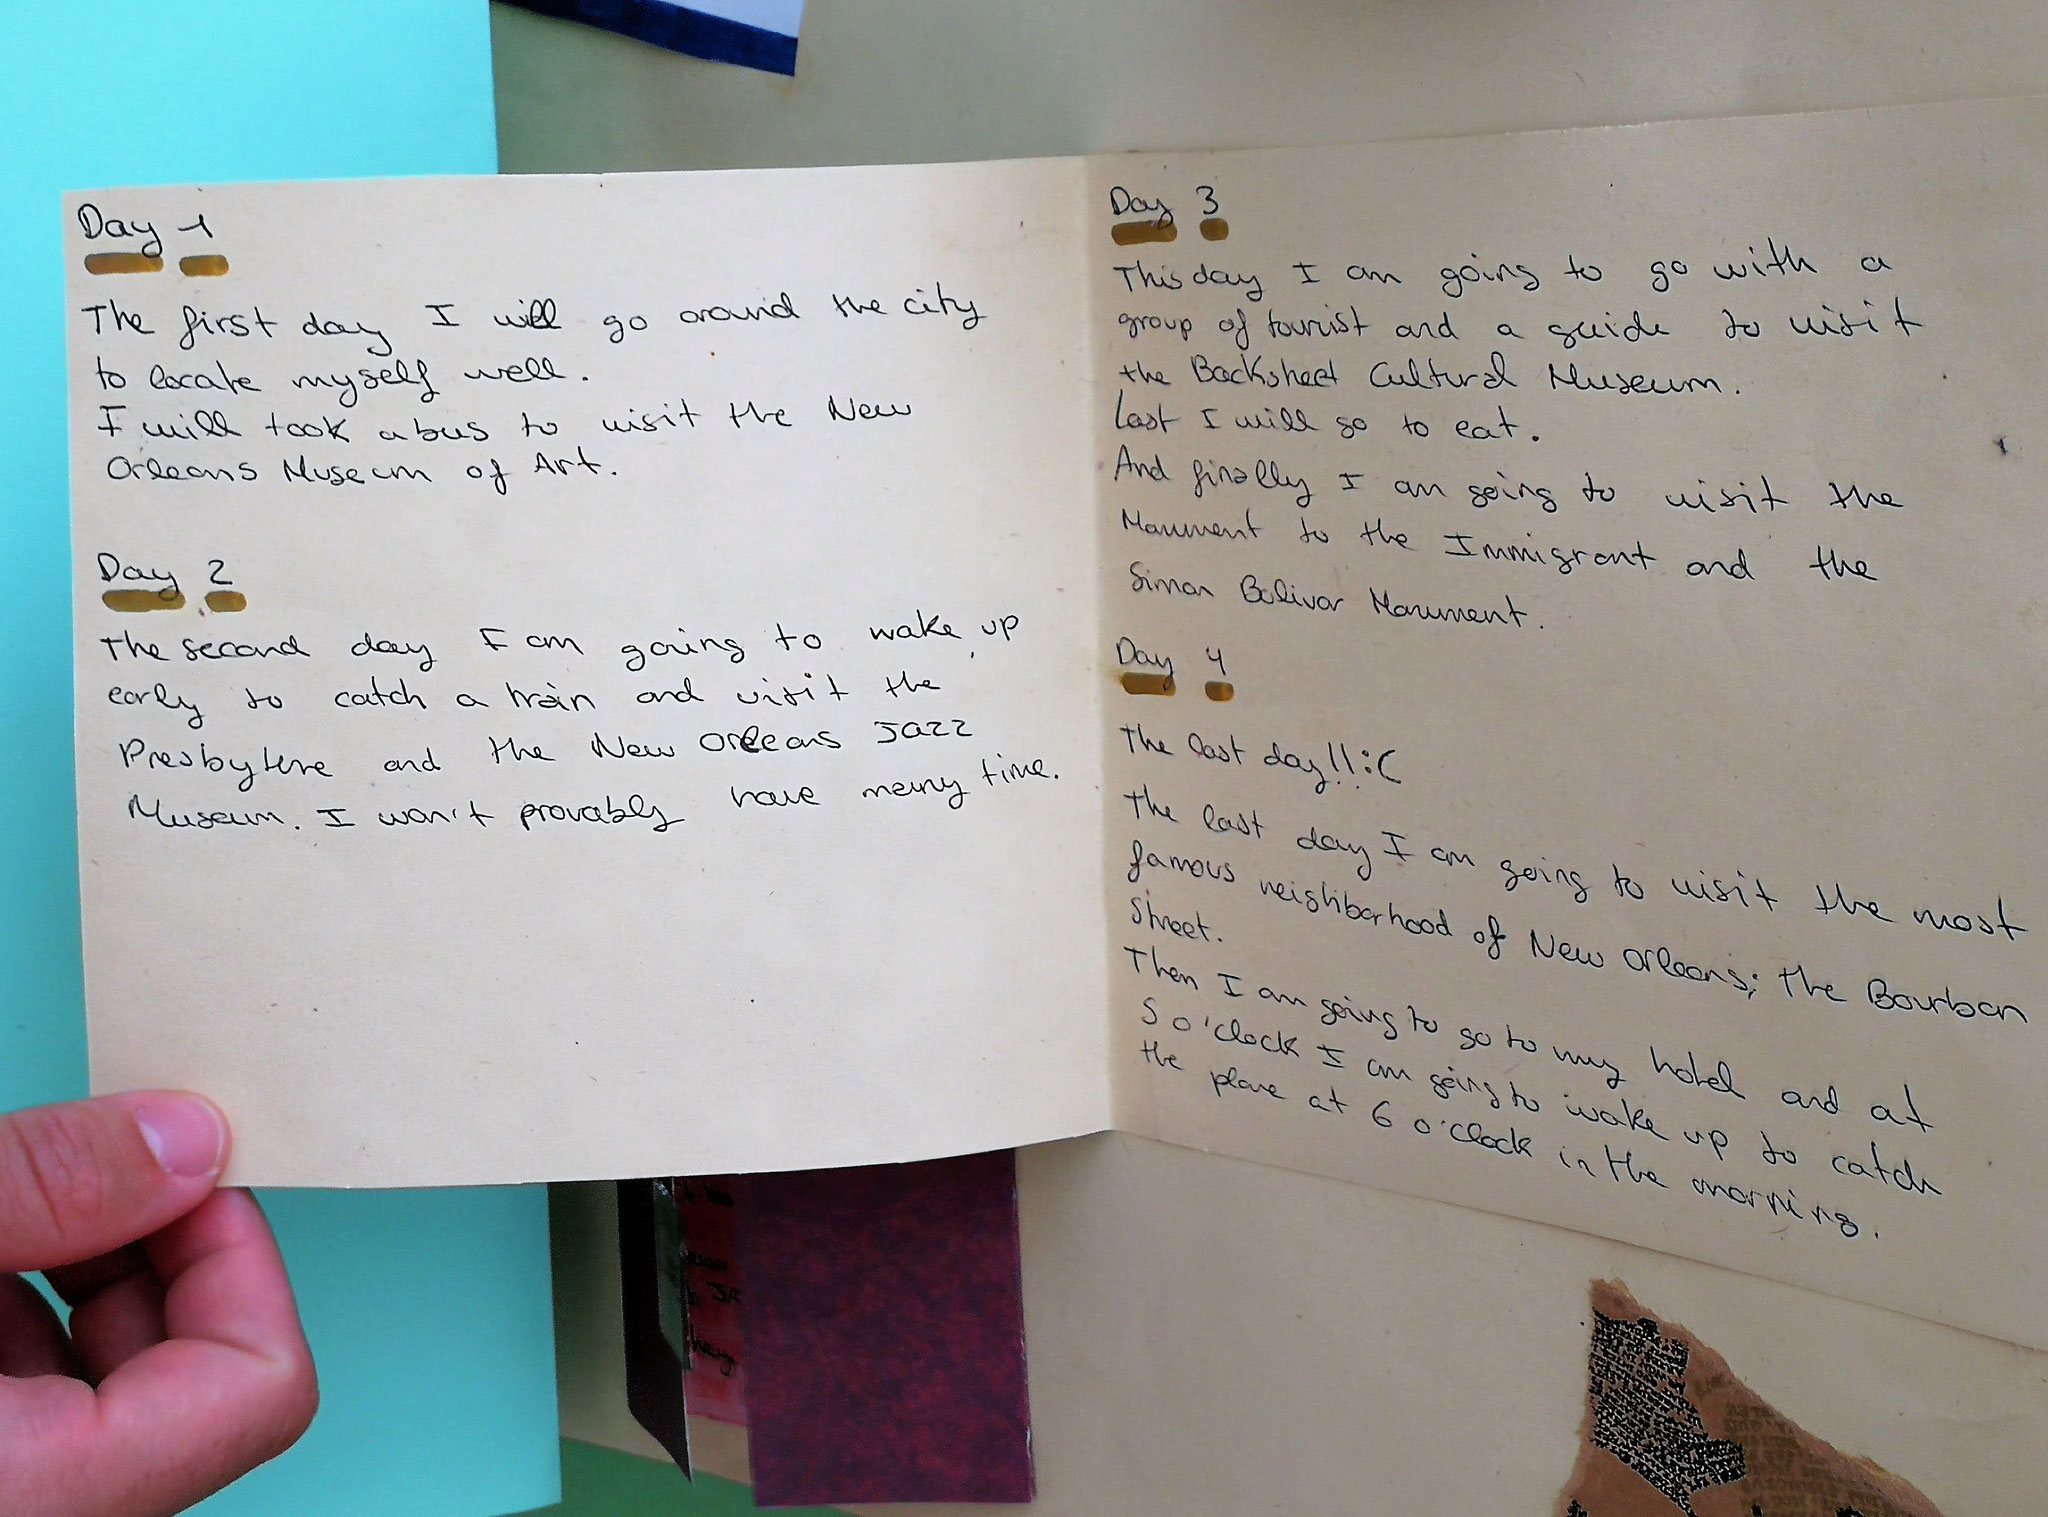 Day 1
The first day I will go around the city
to locate myself well.
I will took a bus to visit the New
Orleans Museum of Art.
Day 2
The second day I am going to wake up
early to catch a train and visit the
Presbytere and the New Orleans Jazz
Museum. I won't provably have many time.
Day 3
This day I am going to go with a
group of tourist and a guide to visit
the Backsheet Cultural Museum.
Last I will go to eat.
And finally I am going to visit the
Monument to the Immigrant and the
Simon Bolivar Monument.
Day 4
The last day!!:(
The last day I am going to visit the most
famous neighborhood of New Orleans; the Bourbon
Street.
Then I am going to go to my hotel and at
5 o'clock I am going to wake up to catch
the plane at 6 o'clock in the morning.